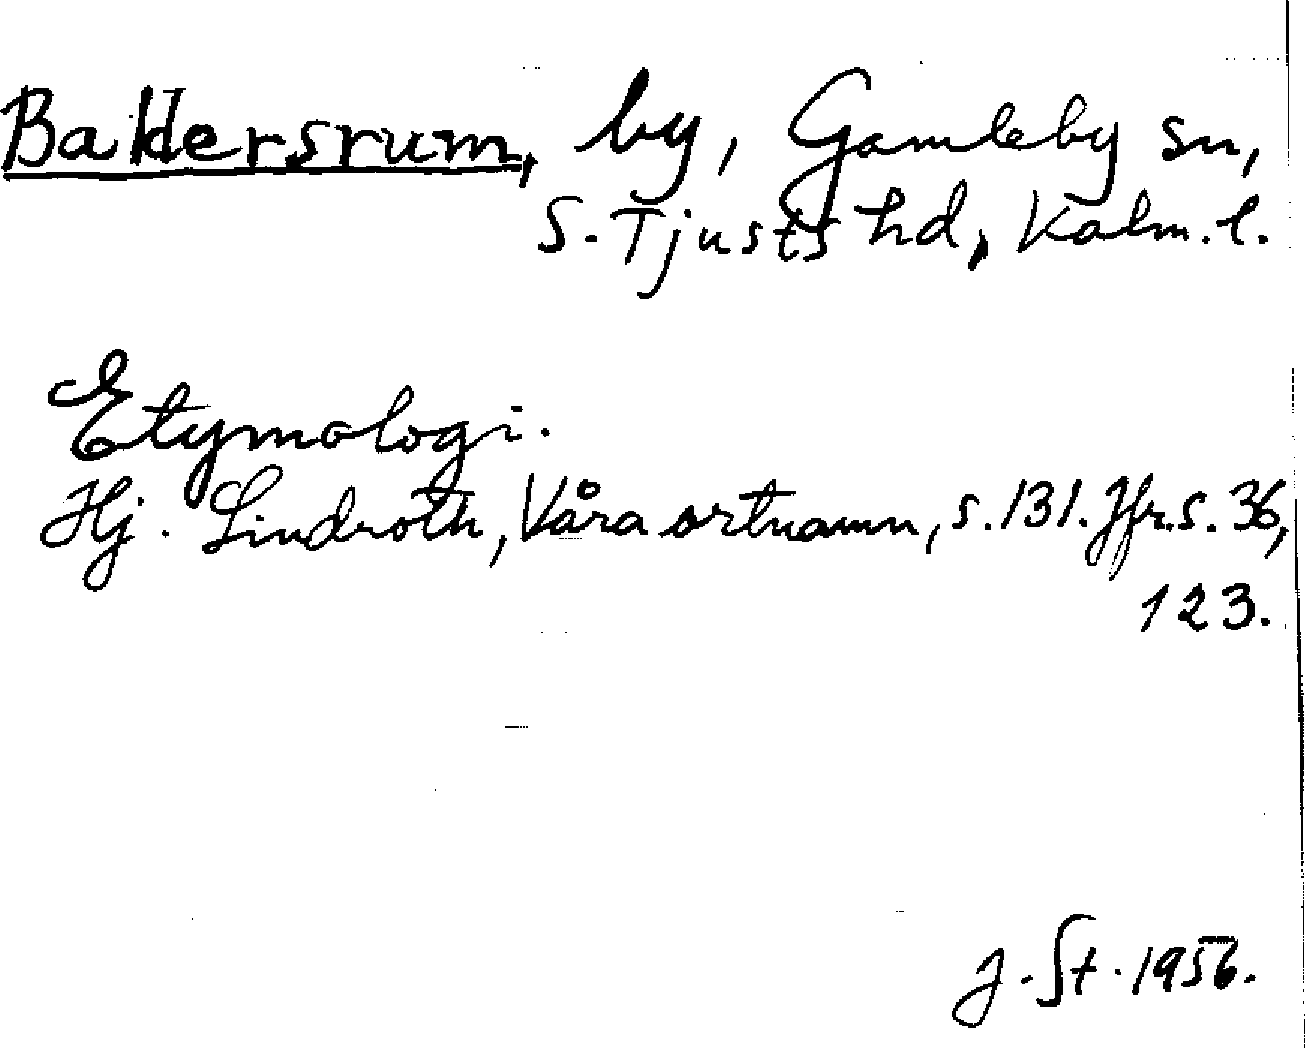 Baldersrum, by, Gamleby sn,
S. Tjusts hd, Kalm. l.
Etymologi.
Hj. Lindroth, Våra ortnamn, s. 131. Jfr. s. 36,
123.
J. St. 1956.